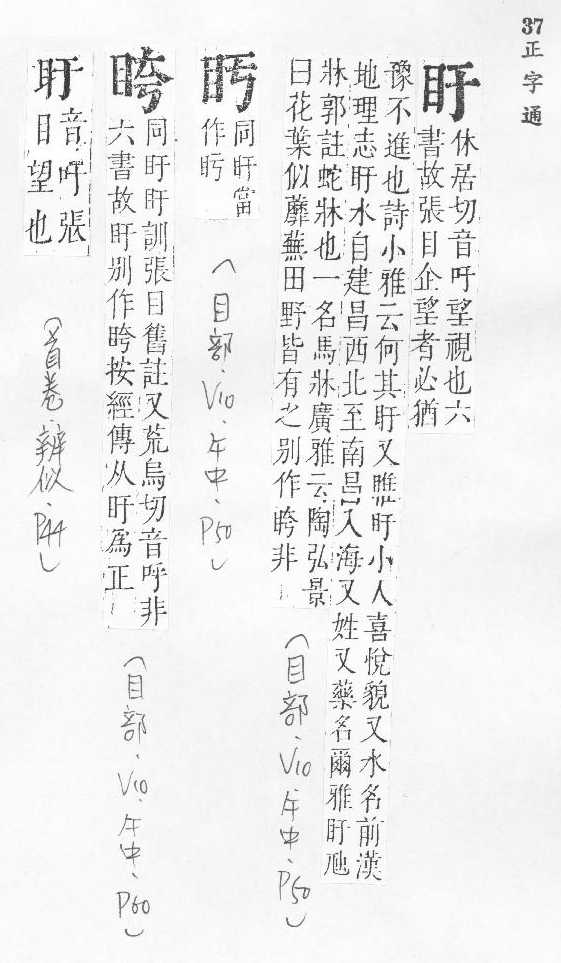 37正字通
盱
休居切音吁望視也六
書故張目企望者必猶
豫不進也詩小雅云何其盱又睢盱小人喜悅貌又水名前漢
地理志盱水自建昌西北至南昌入海又姓又藥名爾雅盱虺
牀郭註蛇牀也一名馬牀廣雅云陶弘景
曰花葉似蘼蕪田野皆有之别作晇非
(目部、V10、午中、P50)
𥄎
同盱當
作盱
(目部、V10、午中、P50)
晇
同盱盱訓張目舊註又荒烏切音呼非
六書故盱别作晇按經傳从盱爲正
(目部、V10、午中、P60)
盱
音吁張
目望也
(首卷、辨似、P44)